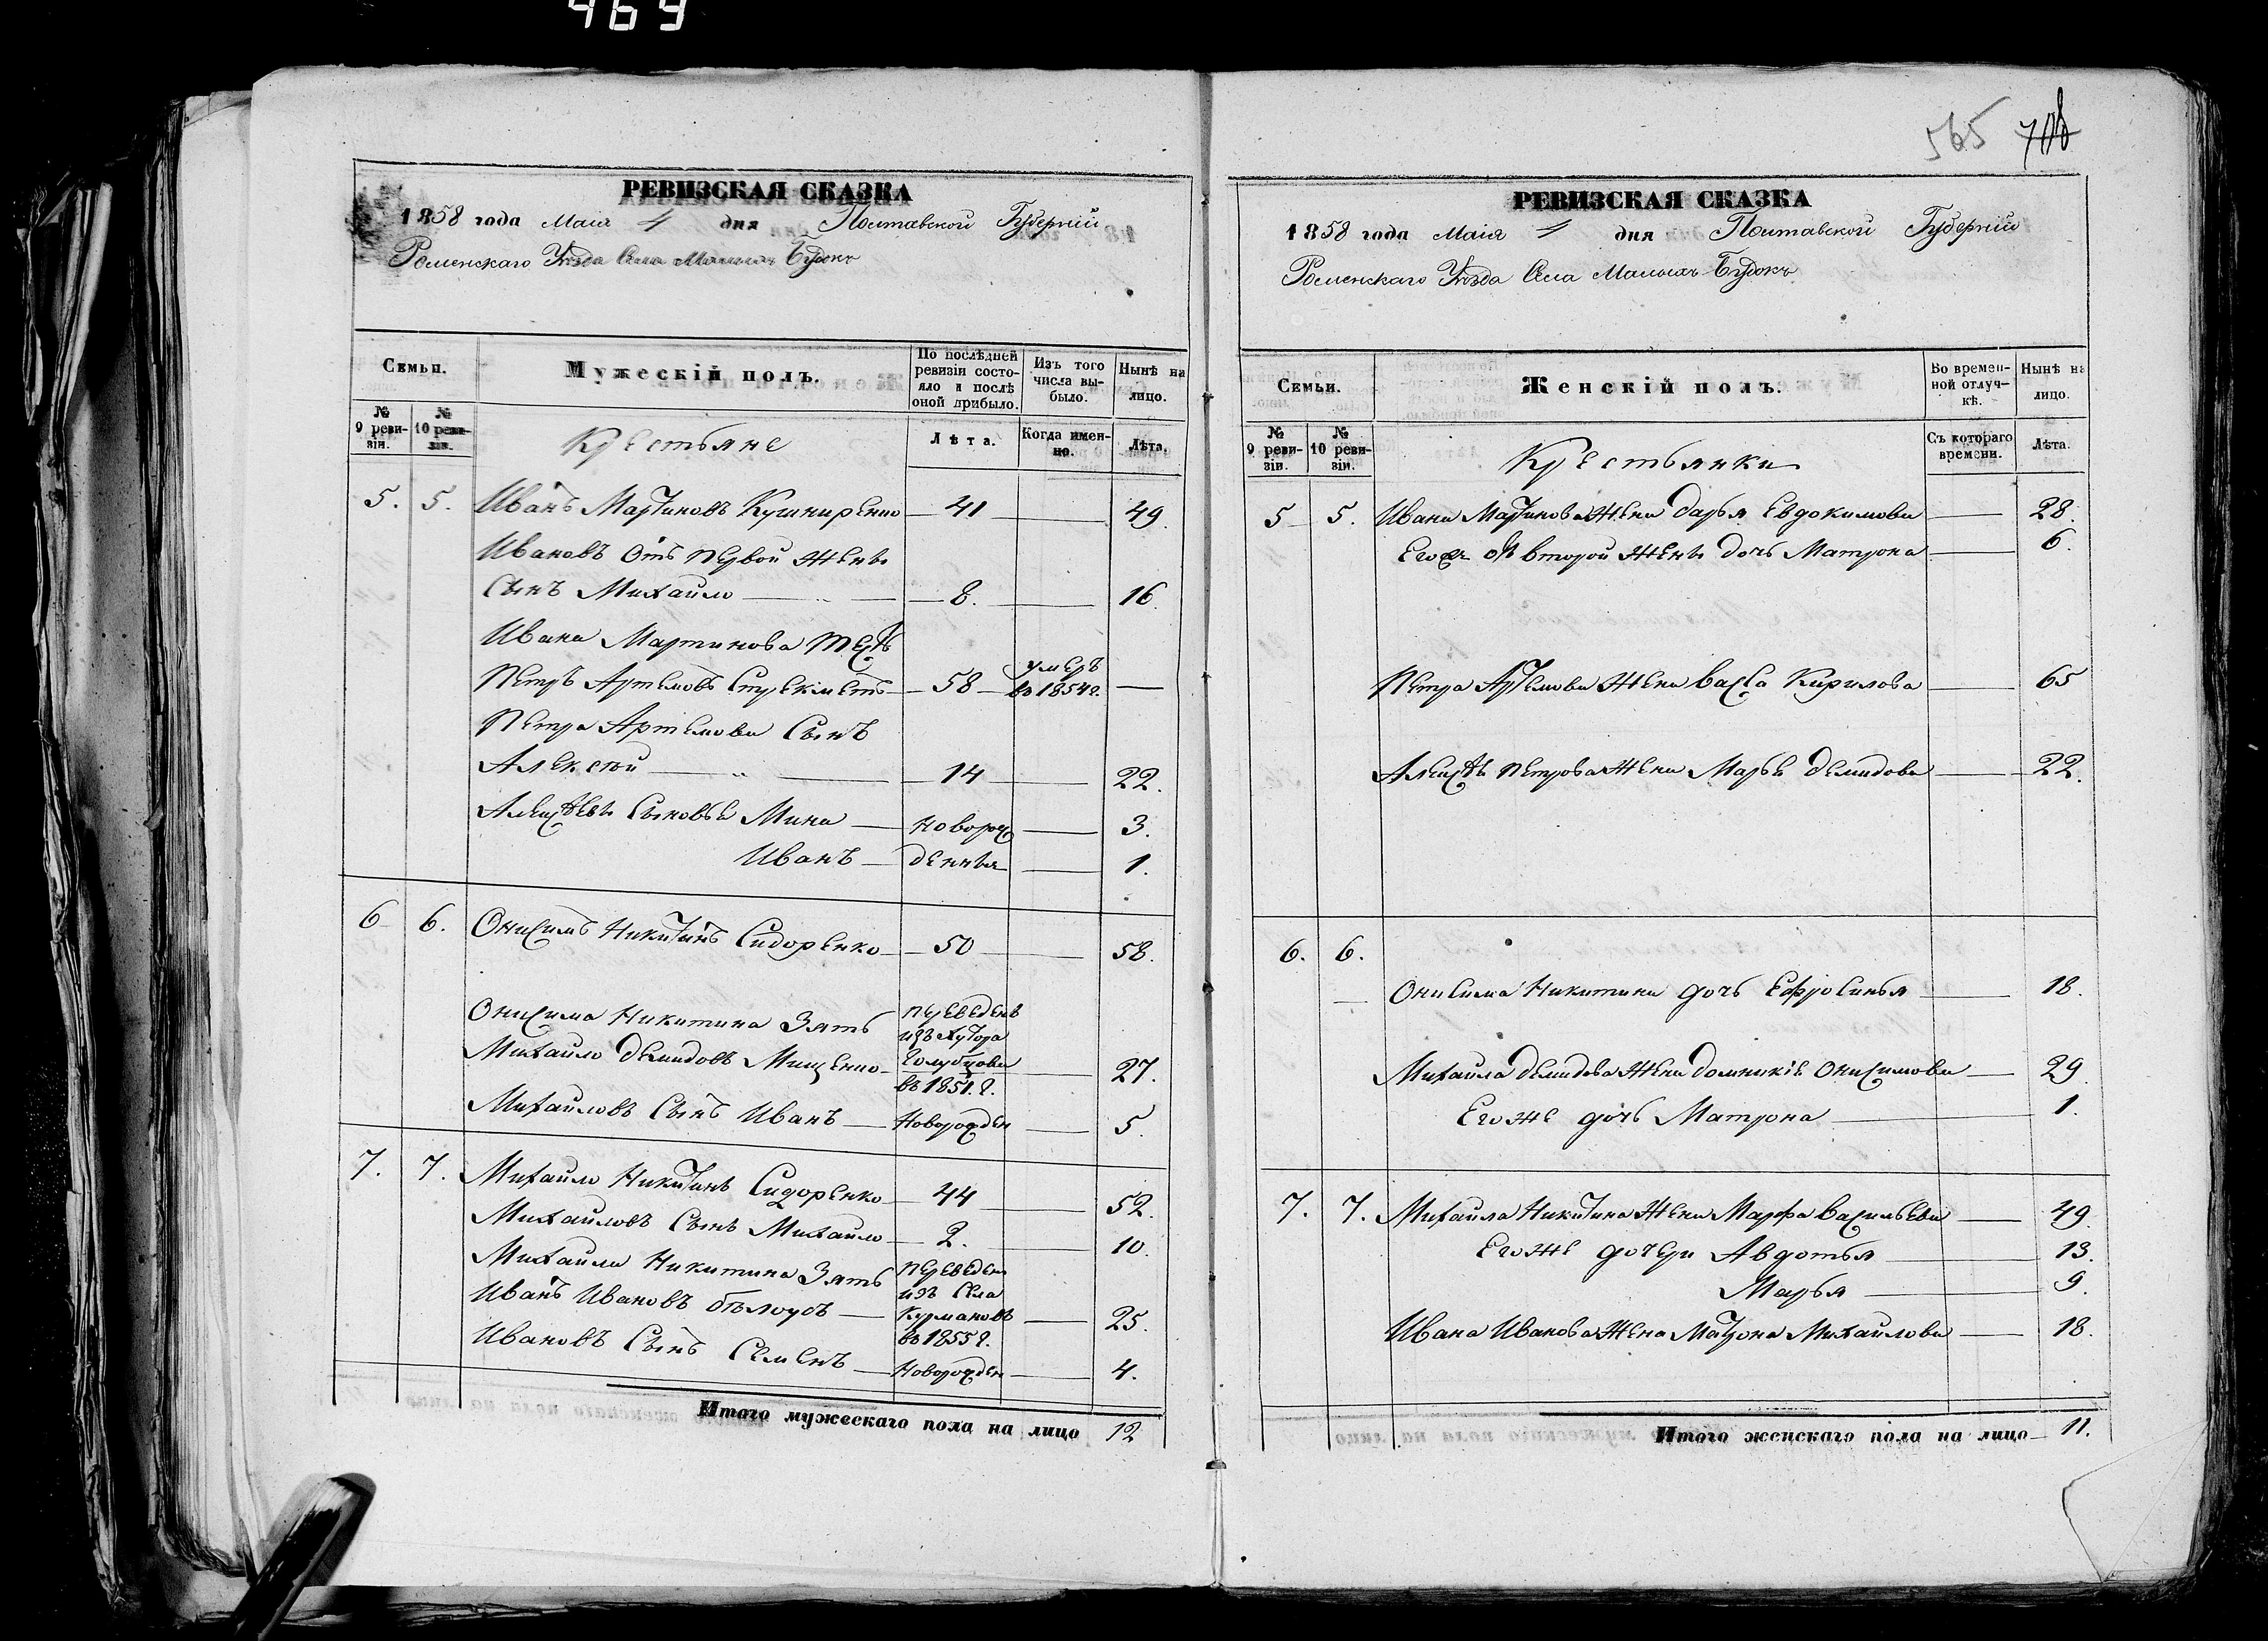 469
РЕВИЗСКАЯ СКАЗКА
1858 года Маія 4 дня Полтавской Губерніи
Роменскаго Уѣзда Села Малыхъ Будокъ
Семьи.
Мужескій полъ.
По послѣдней ревизіи состояло и послѣ оной прибыло.
Изъ того числа выбыло.
Нынѣ на лицо.
№ 9 ревизіи.
№ 10 ревизіи.
Крестьяне
Лѣта.
Когда именно.
Лѣта.
5. 5. Иванъ Мартиновъ Кушниренко — 41 — 49.
Ивановъ Отъ Первой Жены
Сынъ Михайло — 8. — 16.
Ивана Мартинова Тесть
Петръ Артемовъ — 58 — умеръ въ 1854 г. —
Петра Артемова Сынъ
Алексѣй — 14 — 22.
Алексѣевы Сыновья Мина — Новорож — 3.
Иванъ — денныя — 1.
6 6. Онисимъ Никитинъ Сидоренко — 50 — 58.
Онисима Никитина Зять
Михайло Демидовъ Мищенко — переведенъ изъ Хутора Голубцова въ 1851. г. — 27.
Михайловъ Сынъ Иванъ — Новорожден — 5.
7. 7. Михайло Никитинъ Сидоренко — 44 — 52.
Михайловъ Сынъ Михайло — 2. — 10.
Михайла Никитина Зять
Иванъ Ивановъ Бѣлоусъ — переведен изъ Села Курмановъ въ 1855 г. — 25.
Ивановъ Сынъ Семенъ — Новорожден — 4.
Итого мужескаго пола на лицо 12
565 708
РЕВИЗСКАЯ СКАЗКА
1858 года Маія 4 дня Полтавской Губерніи
Роменскаго Уѣзда Села Малыхъ Будокъ
Семьи.
Женскій полъ.
Во временной отлучкѣ.
Нынѣ на лицо.
№ 9 ревизіи.
№ 10 ревизіи.
Крестьянки
Съ котораго времени.
Лѣта.
5 5. Ивана Мартинова Жена Дарья Евдокимова — 28.
Его отъ второй Жены дочь Матрона — 6.
Петра Артемова Жена Васса Кирилова — 65
Алексѣя Петрова Жена Марья Демидова — 22.
6. 6.
Онисима Никитина дочь Ефросинья — 18.
Михайла Демидова Жена Домникія Онисимова — 29.
Его же дочь Матрона — 1.
7. 7. Михайла Никитина Жена Марфа Васильева — 49.
Его же дочери Авдотья — 13.
Марья — 9.
Ивана Иванова Жена Матрона Михайлова — 18.
Итого женскаго пола на лицо — 11.